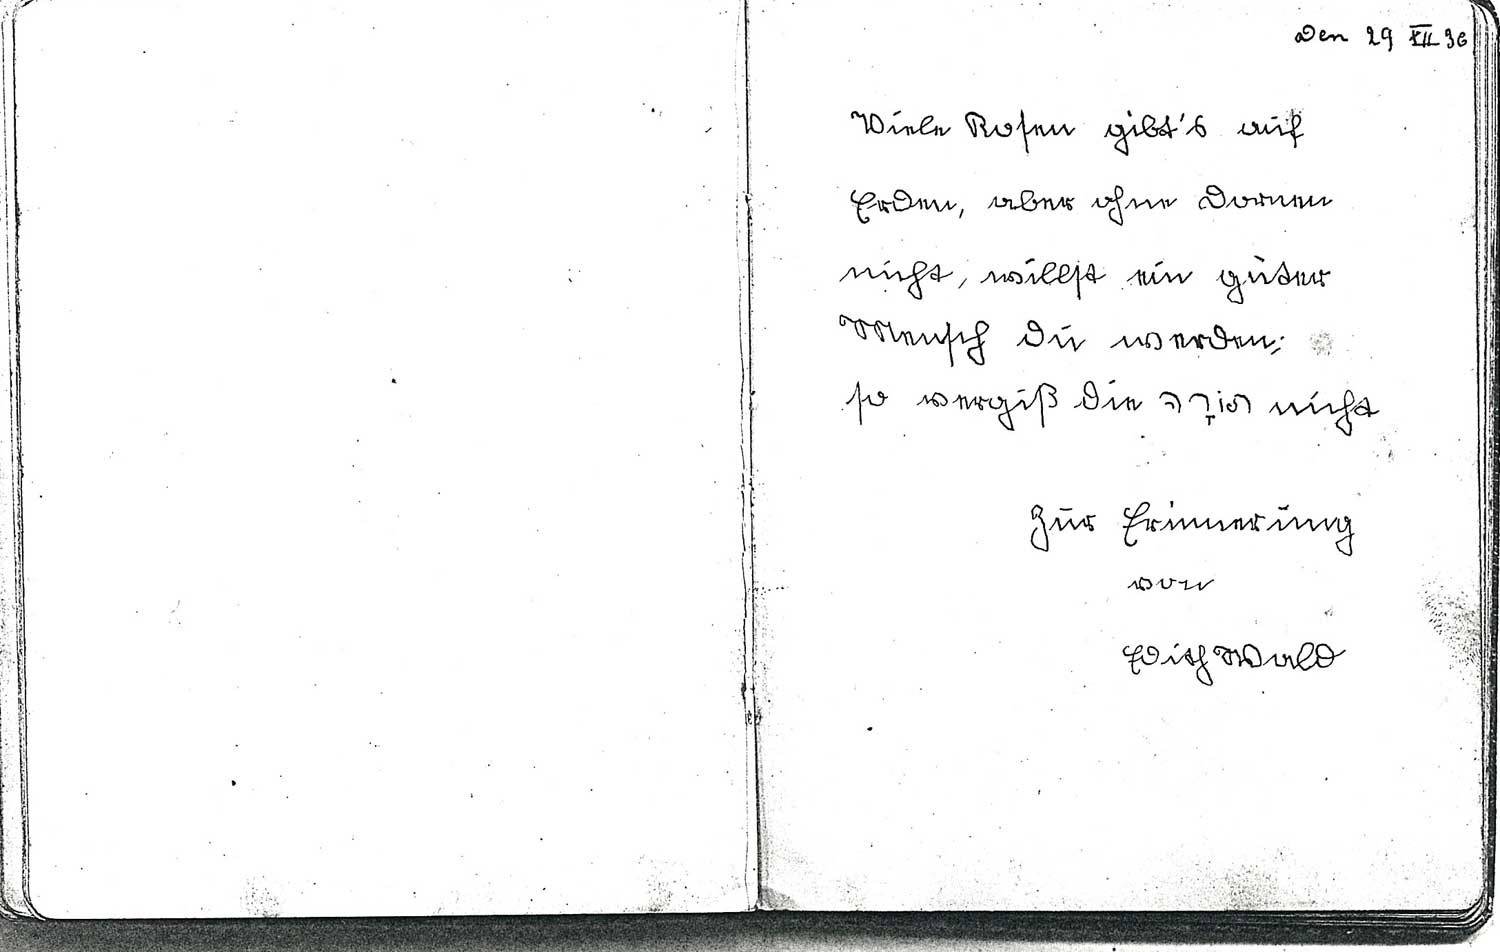 Den 29 XII 36
Viele Rosen gibt's auf
Erden, aber ohne Dornen
nicht, willst ein guter
Mensch Du werden;
so vergiß die תּוֹרָה nicht
Zur Erinnerung
von
Edith Wald